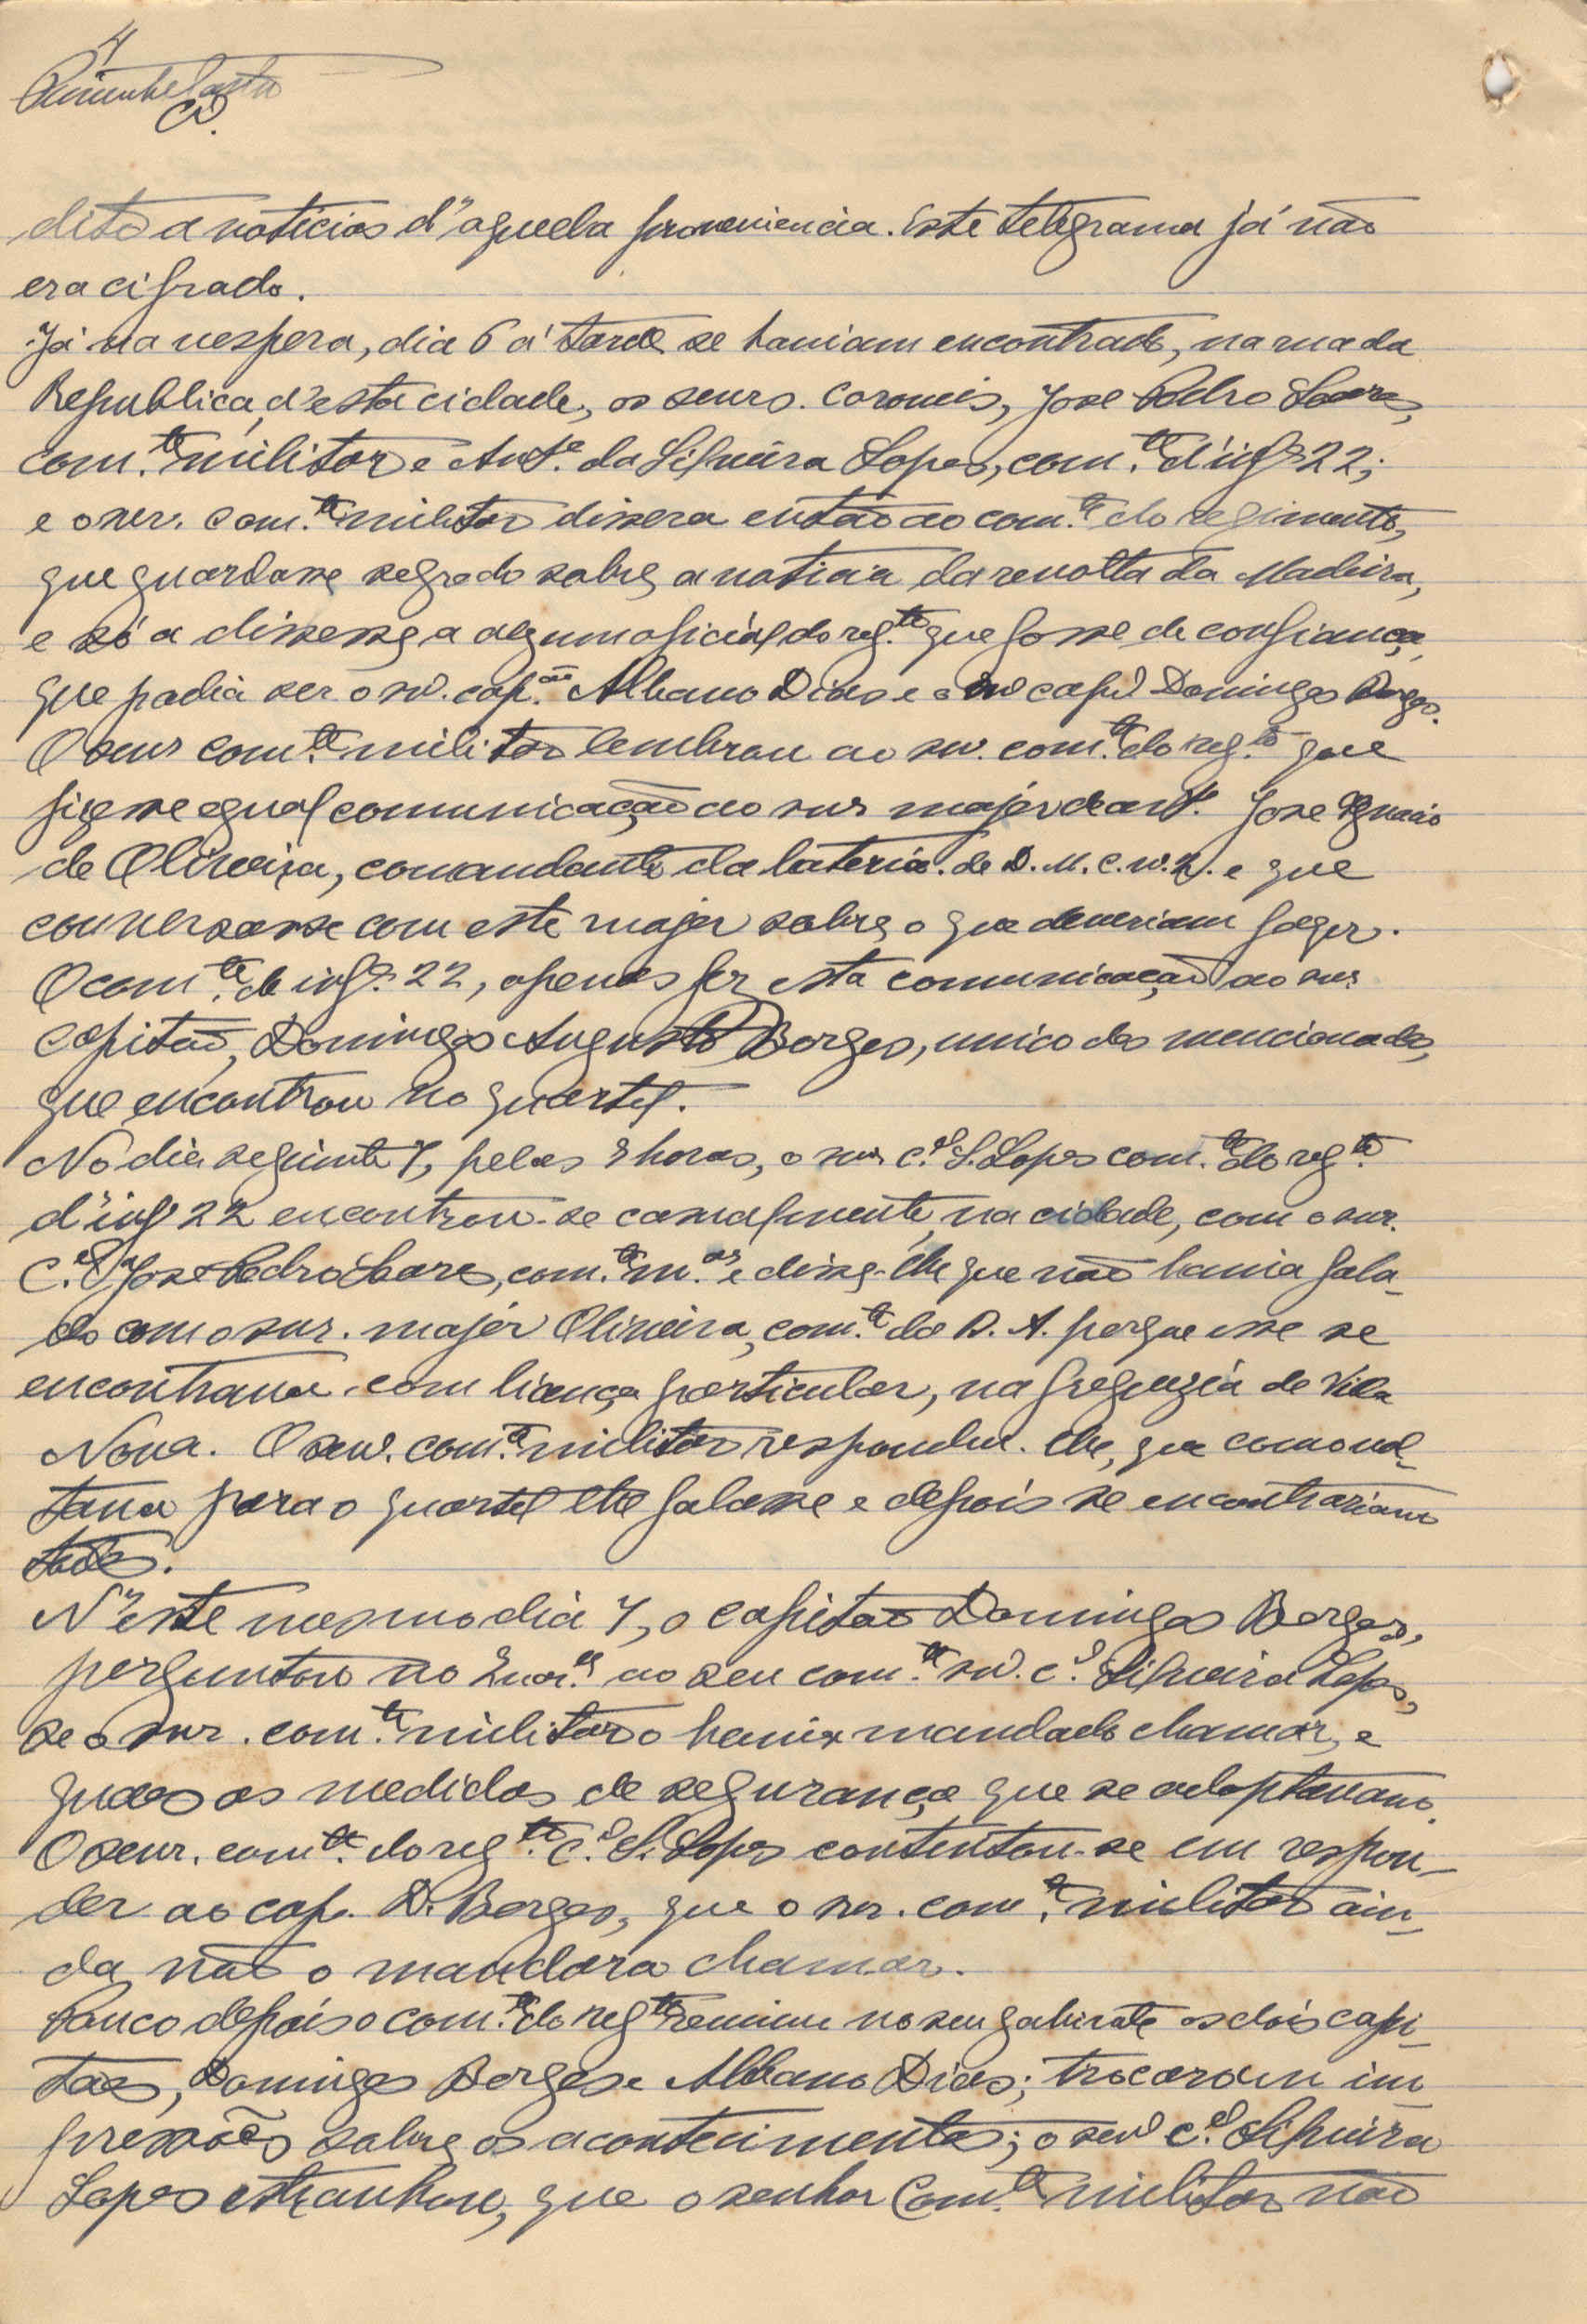 4
dito a noticias d'aquela proveniencia. Este telegrama já não
era cifrado.
Já na vespera, dia 6 á tarde se haviam encontrado, na rua da
Republica, d'esta cidade, os senrs. coroneis, José Pedro Soares,
com.te militar e Ant.º da Silveira Lopes, com.te d'inf.ª 22;
e o snr. com.te militar dissera então ao com.te do regimento,
que guardasse segredo sobre a noticia da revolta da Madeira,
e só a dissesse a algum oficial do reg.to que fosse de confiança,
que podia ser o sr. cap.ão Albano Dias e o sr cap. Domingos Borges.
O senr com.te militar lembrou ao snr. com.te do reg.to que
fizesse egual comunicação ao snr major de art.ª José Ignacio
de Oliveira, comandante da bateria de D. M. C. n.º 2. e que
conversasse com este major sobre o que deveriam fazer.
O com.te de inf.ª 22, apenas fez esta comunicação ao snr.
capitão, Domingos Augusto Borges, unico dos mencionados,
que encontrou no quartel.
No dia seguinte 7, pelas 9 horas, o snr c.el S. Lopes com.te do reg.to
d'inf 22 encontrou-se casualmente, na cidade, com o snr.
C.el José Pedro Soares, com.te m.ar e disse-lhe que não havia fala-
do com o snr. major Oliveira, com.te da D. A. porque esse se
encontrava com licença particular, na freguezia de Villa
Nova. O snr. com.te militar respondeu-lhe, que como vol-
tava para o quartel lhe falasse e depois se encontrariam
todos.
N'este mesmo dia 7, o capitão Domingos Borges,
perguntou no Quar.el ao seu com.te sr. c.el Silveira Lopes,
se o snr. com.te militar o havia mandado chamar, e
quaes as medidas de segurança que se adoptavam.
O senr. com.te do reg.to c.el S. Lopes contentou-se em respon-
der ao cap. D. Borges, que o snr. com.te militar ain-
da não o mandara chamar.
Pouco depois o com.te do reg.to reuniu no seu gabinete os dois capi-
tães, Domingos Borges e Albano Dias; trocaram im
pressões sobre os acontecimentos; o senr c.el Silveira
Lopes estranhou, que o senhor Com.te militar não